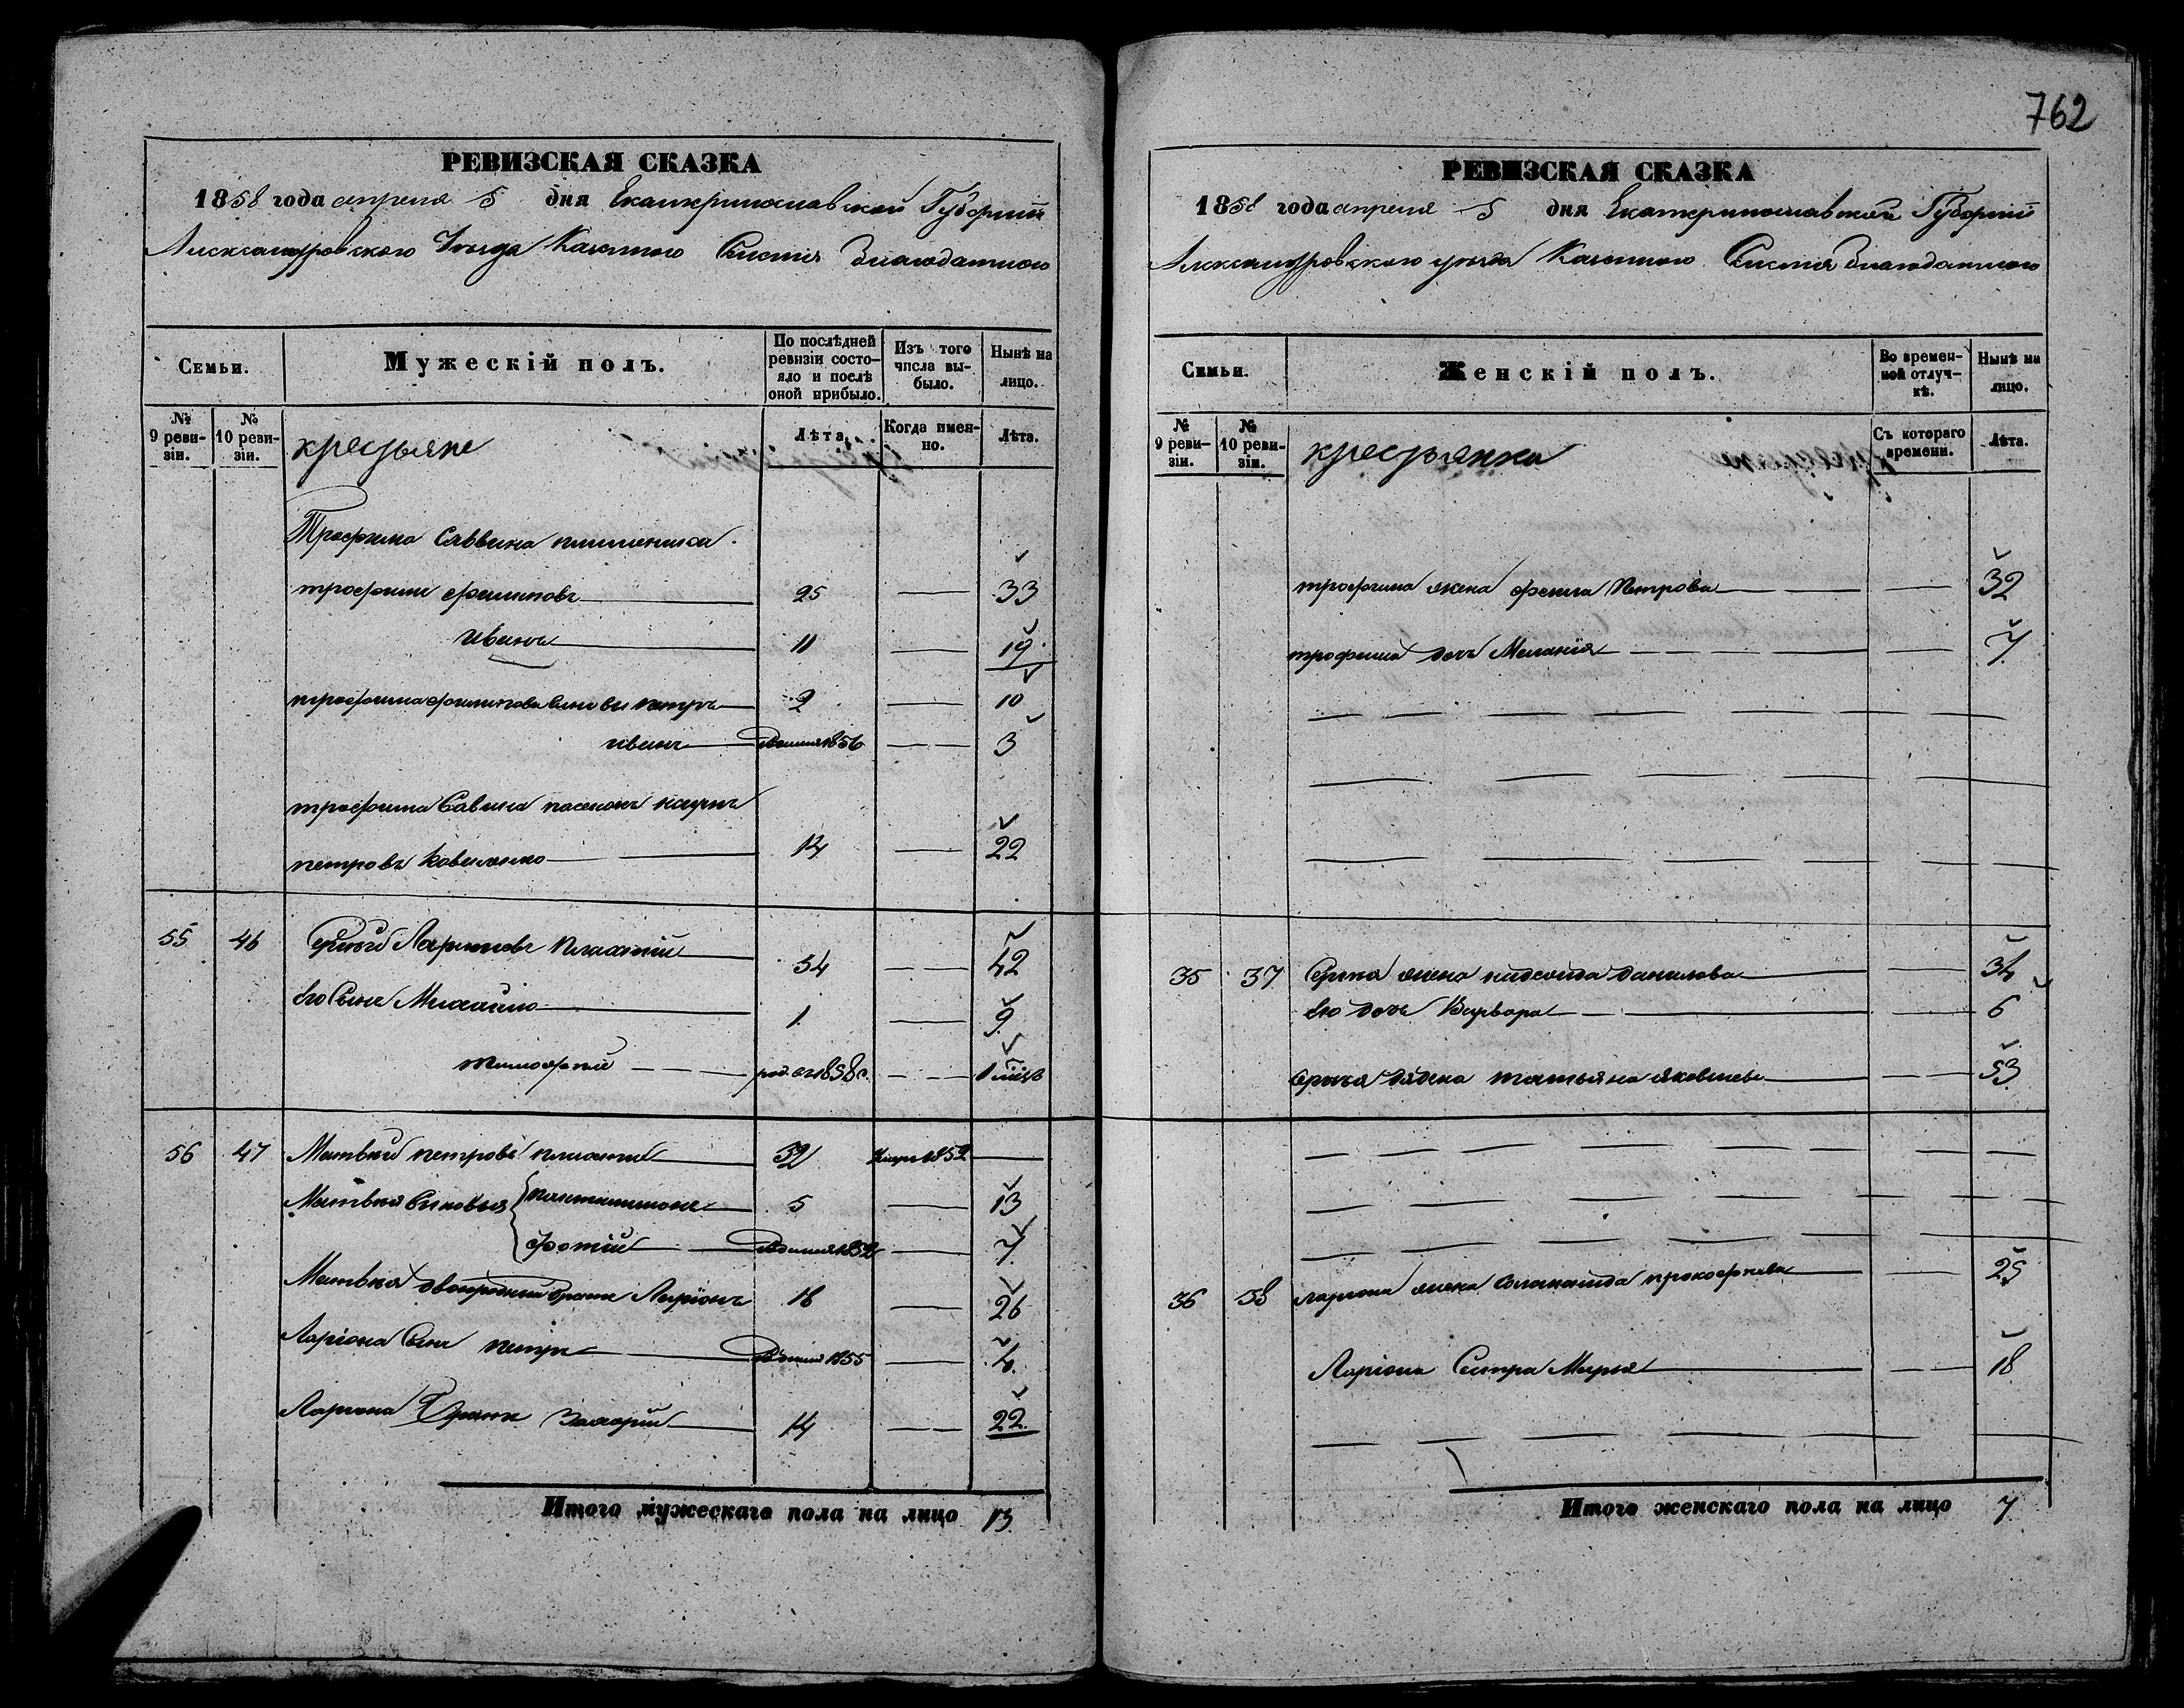 762
РЕВИЗСКАЯ СКАЗКА
1858 года апреля 5 дня Екатеринославской Губернии
Александровского Уезда Казенного Селения Благодатного
Семьи.
Мужескій полъ.
По послѣдней ревизіи состояло и послѣ оной прибыло.
Изъ того числа выбыло.
Нынѣ на лицо.
№ 9 ревизіи.
№ 10 ревизіи.
крестьяне
Лѣта.
Когда именно.
Лѣта.
Трофима Саввина племенника
трофим филиповъ 25 33
иванъ 11 19
трофима филипова Синовья петръ 2 10
иванъ 1856 3
трофима Савина пасенокъ
петровъ 14 22
55 46 Ларионовъ 34 42
его Сынъ Михаило 1 9
тимофей род. 1858
56 47 Матвей петровъ 32 1852
Матвея Синовья пантилимонъ 5 13
фотий 1852 7
Матвея двоюродный братъ Ларіонъ 18 26
Ларіона Сынъ петръ 1855 4
Лариона Братъ Захарій 14 22
Итого мужескаго пола на лицо 13
РЕВИЗСКАЯ СКАЗКА
1858 года апреля 5 дня Екатеринославской Губернии
Александровского уезда Казенного Селения Благодатного
Семьи.
Женскій полъ.
Во временной отлучкѣ.
Нынѣ на лицо.
№ 9 ревизіи.
№ 10 ревизіи.
крестьянки
Съ котораго времени.
Лѣта.
трофима жена Петрова 32
трофима дочь Меланія 7
35 37 жена данилова 34
его дочь Варвара 6
татьяна яковлева 53
36 38 лариона жена прокофиева 25
Ларіона Сестра Марья 18
Итого женскаго пола на лицо 7